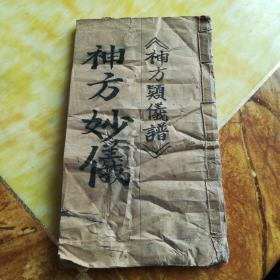 《神方顕儀譜》
神方妙儀